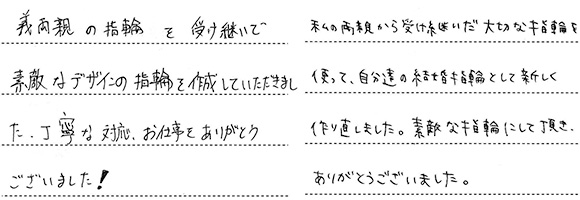 義両親の指輪を受け継いで
素敵なデザインの指輪を作成していただきまし
た。丁寧な対応、お仕事をありがとう
ございました!
私の両親から受け継いだ大切な指輪を
使って、自分達の結婚指輪として新しく
作り直しました。素敵な指輪にして頂き、
ありがとうございました。